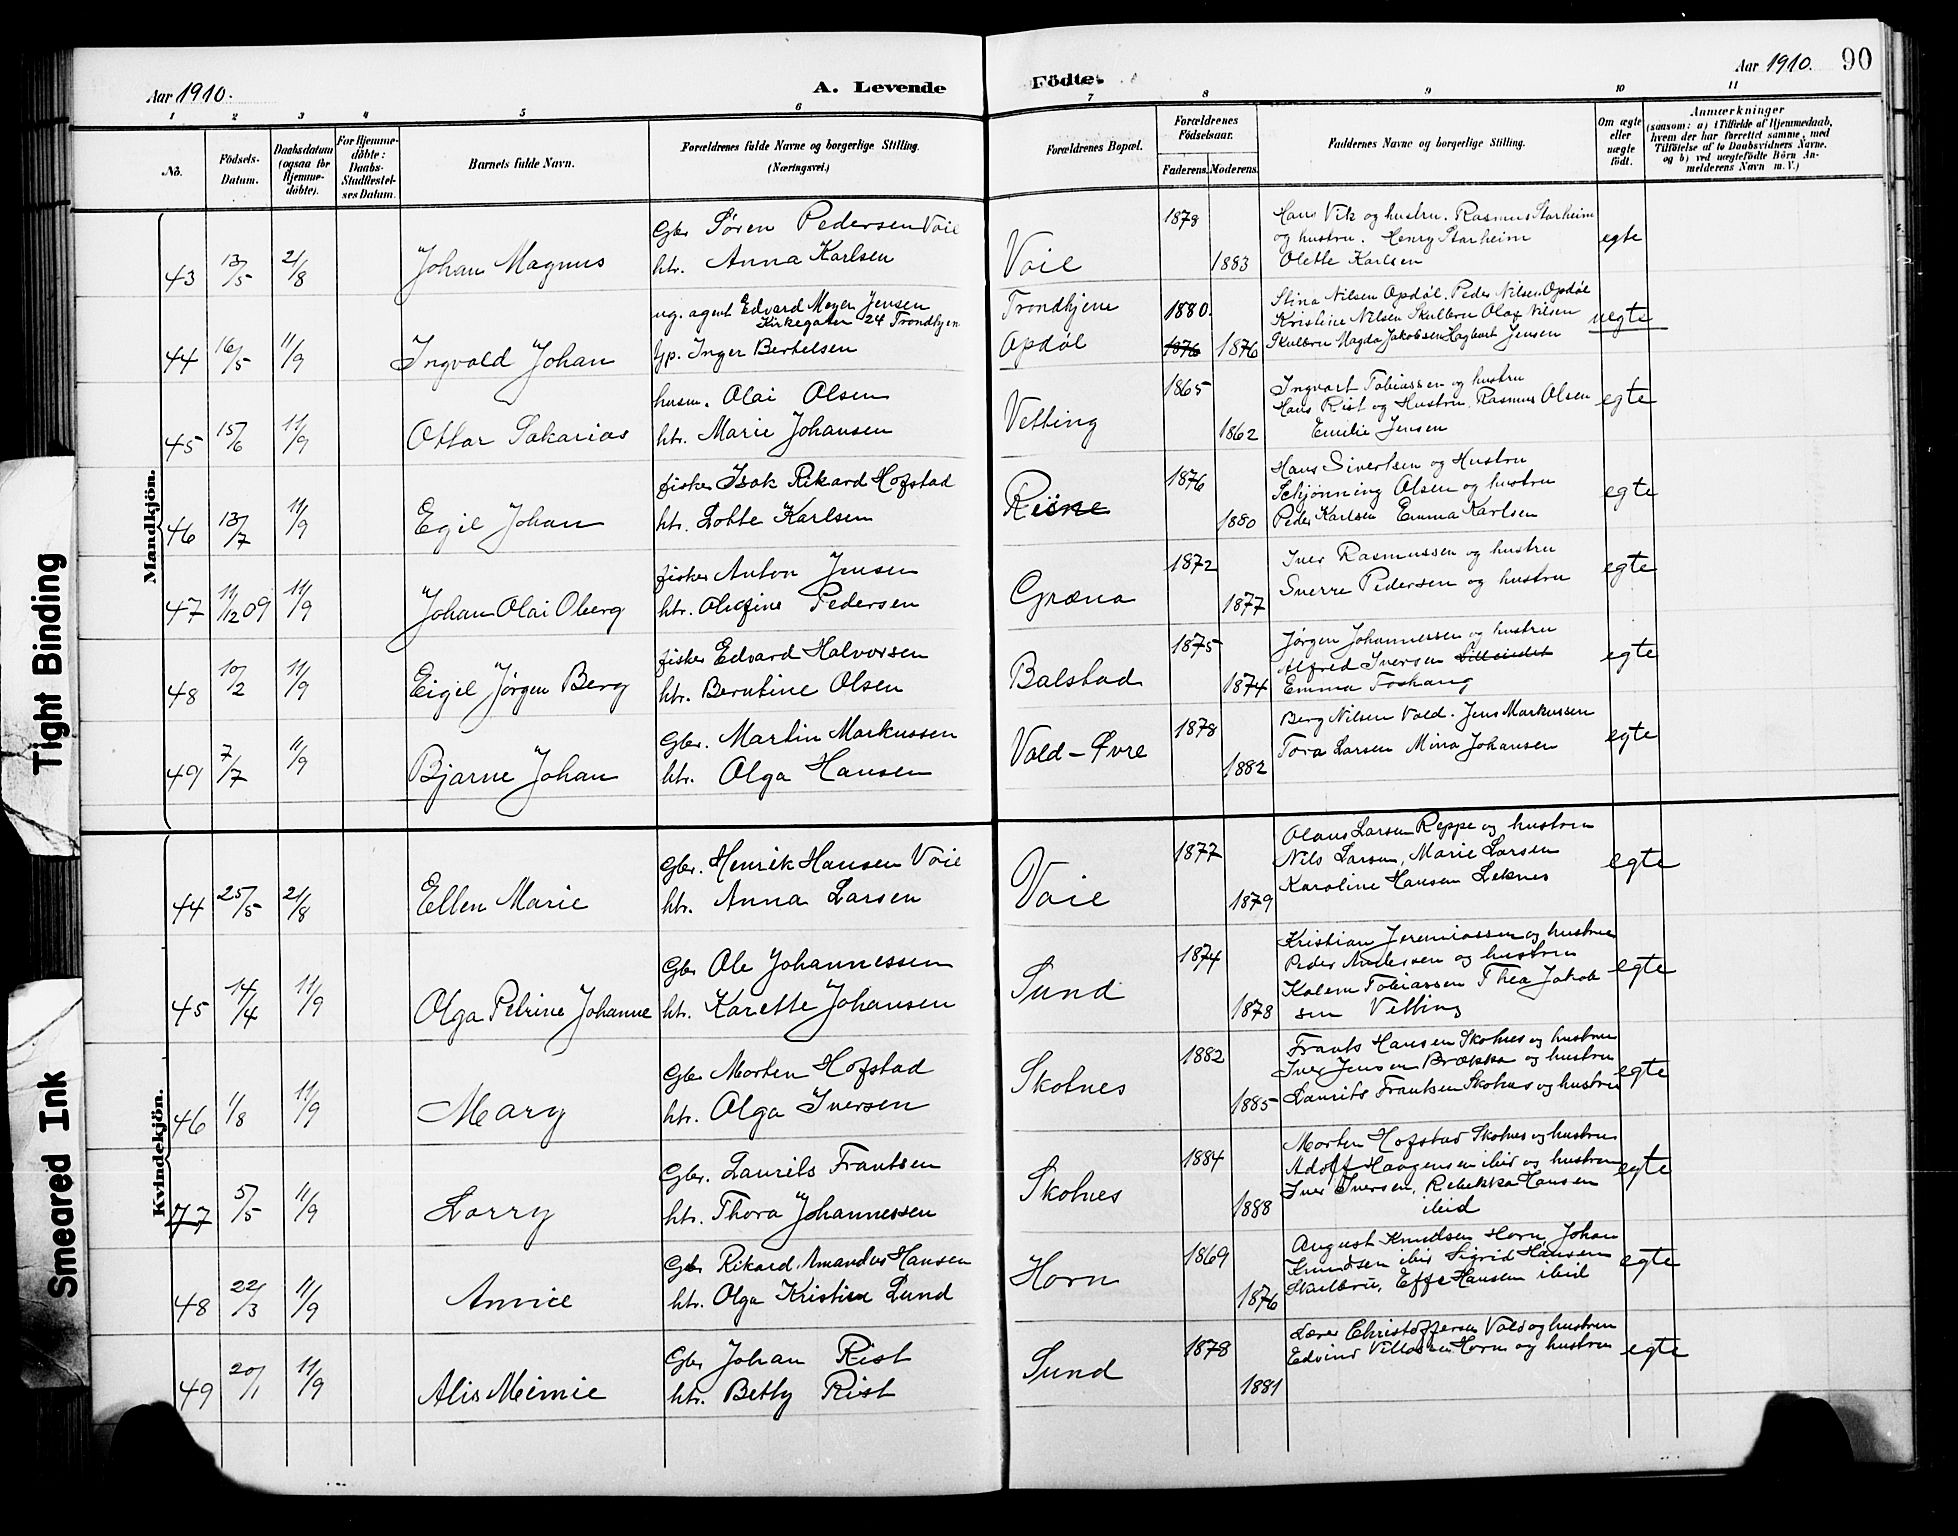 Aar 1910.
A. Levende
Födte.
Aar 1910.
90
1 2 3 4 5 6
7 8 9 10 11
No.
Födsels-
Datum.
Daabsdatum
(ogsaa for
Hjemme-
döbte).
For Hjemme-
döbte:
Daabs-
Stadfæstel-
ses Datum.
Barnets fulde Navn.
Forældrenes fulde Navne og borgerlige Stilling.
(Næringsvei.)
Forældrenes Bopæl.
Forældrenes
Födselsaar.
Faderens. Moderens.
Faddernes Navne og borgerlige Stilling.
Om ægte
eller
uægte
födt.
Anmærkninger
(saasom: a) i Tilfælde af Hjemmedaab,
hvem der har forrettet samme, med
Tilföielse af to Daabsvidners Navne.
og b) ved uægtefödte Börn An-
melderens Navn m. V.)
Mandkjön.
43 13/5 21/8 Johan Magnus
Gbr Søren Pedersen Voie
htr. Anna Karlsen
Voie
1878
1883
Hans Vik og hustru. Rasmus Starheim
og hustru. Henry Starheim
Olette Karlsen
egte
44 16/5 11/9 Ingvald Johan
ug. agent Edvard Meyer Jensen
Kirkegaten 24 Trondhjem
Inger Bertelsen
Trondhjem
Opdøl
1880.
1876 1876
Stina Nilsen Opdøl. Peder Nilsen Opdøl
Kristine Nilsen Skulbru Olaf Nilsen
Skulbru Magda Jakobsen Hagbart Jensen
uegte
45 15/6 11/9 Ottar Sakarias
husm. Olai Olsen
htr. Marie Johansen
Vetting
1865
1862
Ingvart Tobiassen og hustru
Hans Rist og Hustru. Rasmus Olsen
Emilie Jensen
egte
46 13/7 11/9 Egil Johan
fisker Isak Rikard Hofstad
htr. Lotte Karlsen
1876
1880
Hans Sivertsen og Hustru
Schjønning Olsen og hustru
Peder Karlsen Emma Karlsen
egte
47 11/12 09 11/9 Johan Olai Oberg
fisker Anton Jensen
htr. Olefine Pedersen
Græna
1872
1877
Iver Rasmussen og hustru
Sverre Pedersen og hustru
egte
48 10/2 11/9 Eigil Jørgen Berg
fisker Edvard Halvorsen
htr. Berntine Olsen
Balstad
1875
1874
Jørgen Johannessen og hustru
Alfred Iversen
Emma Toskang
egte
49 7/7 11/9 Bjarne Johan
Gbr. Martin Markussen
htr. Olga Hansen
Vold - Øvre
1878
1882
Berg Nilsen Vold. Jens Markussen
Tora Larsen Mina Johansen
egte
Kvindekjön.
44 25/5 21/8 Ellen Marie
Gbr. Henrik Hansen Voie
htr. Anna Larsen
Voie
1877
1879
Olaus Larsen Reppe og hustru
Nils Larsen, Marie Larsen
Karoline Hansen Leknes
egte
45 14/4 11/9 Olga Petrine Johanne
Gbr Ole Johannessen
htr. Karette Johansen
Sund
1874
1878
Kristian Jeremiassen og hustru
Peder Andersen og hustru
Kalem Tobiassen Thea Jakob
sen Vetting
egte
46 1/8 11/9 Mary
Gbr Morten Hofstad
htr. Olga Iversen
Skotnes
1882
1885
Frants Hansen Skotnes og hustru
Iver Jensen Brækka og hustru
Laurits Frantsen Skotnes og hustru
egte
77 5/5 11/9 Lorry
Gbr. Laurits Frantsen
htr. Thora Johannessen
Skotnes
1884
1888
Morten Hofstad Skotnes og hustru
Adolf Haagensen ibid og hustru
Iver Iversen, Rebekka Hansen
ibid
egte
48 22/3 11/9 Annie
Gbr Rikard Amandus Hansen
htr. Olga Kristine Lund
Horn
1869
1876
August Knudsen Horn, Johan
Knudsen ibid Sigrid Hansen
Skulbru, Effe Hansen ibid
egte
49 20/1 11/9 Alis Meimie
Gbr Johan Rist
htr. Betty Rist
Sund
1878
1881
Lærer Christoffersen Vold og hustru
Edvind Villassen Horn og hustru
egte
Tight Binding
Smeared Ink